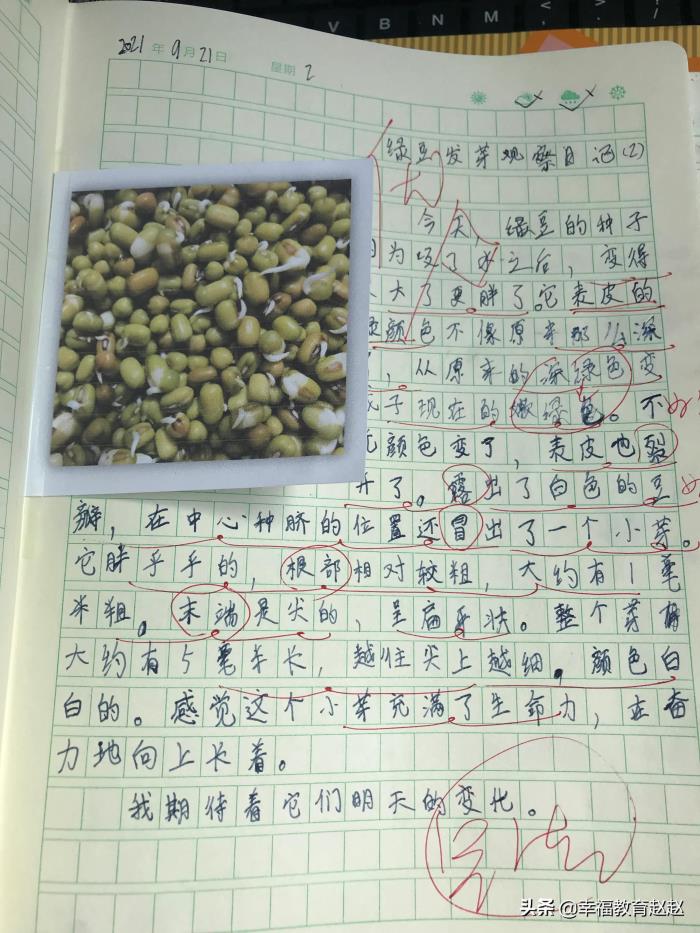 2021年9月21日 星期2
绿豆发芽观察日记(2)
今天，绿豆的种子
为吸了水之后，变得
大了更胖了。它表皮的
颜色不像原来那么深
，从原来的深绿色变
现在的嫩绿色。不
颜色变了，表皮也裂
开了。露出了白色的豆
瓣，在中心种脐的位置还冒出了一个小芽。
它胖乎乎的，根部相对较粗，大约有1毫
米粗。末端是尖的，呈扁平状。整个芽
大约有5毫米长，越往尖上越细。颜色白
白的。感觉这个小芽充满了生命力，在奋
力地向上长着。
我期待着它们明天的变化。
头条 @幸福教育赵赵
V B N M